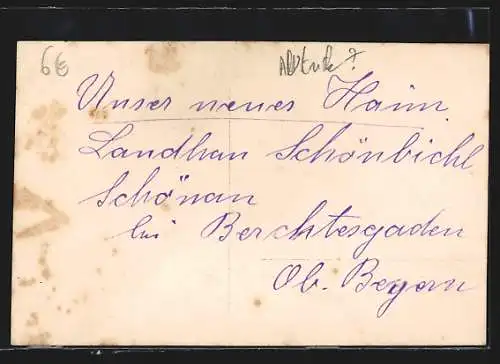 6€
Unser neues Haim
Landhau Schönbichl
Schönau
bei Berchtesgaden
Ob. Beyern